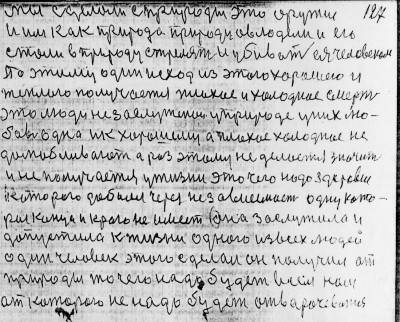 127
мы сделали с природы это оружие
и им как природа природу овладили и его
стали в природу стрелять и убивать ея человеком
По этому один исход из этого хорошего и
теплого получается плохое и холодное смерть
это люди не заслужили у природе у них лю-
бовь одна к хорошему а плохое холодное не
долюбливают а раз этому не делается значит
и не получается у жизни это чего надо здоровье
которого добыли через независимость одну кото-
рая конца и края не имеет Она заслужила и
допустила к жизни одного из всех людей
один человек этого сделал он получил от
природы то чего надо будет всем нам
от которого не надо будет отворачиваться